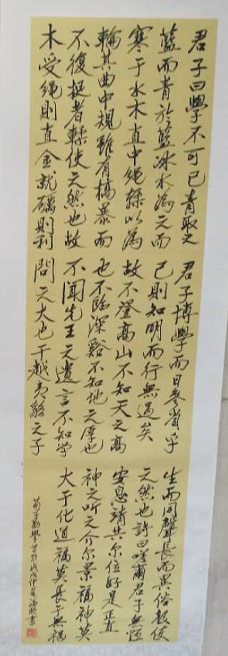 君子曰學不可已青取之
藍而青於藍冰水為之而
寒于水木直中繩輮以為
輪其曲中規雖有槁暴而
不復挺者輮使之然也故
木受繩則直金就礪則利
君子博學而日參省乎
己則知明而行無過矣
故不登高山不知天之高
也不臨深谿不知地之厚也
不聞先王之遺言不知學
問之大也干越夷貉之子
生而同聲長而異俗教使
之然也詩曰嗟爾君子無恆
安息靖共爾位好是正直
神之听之介爾景福神莫
大于化道福莫長于無禍
荀子勸學戊戌仲夏書